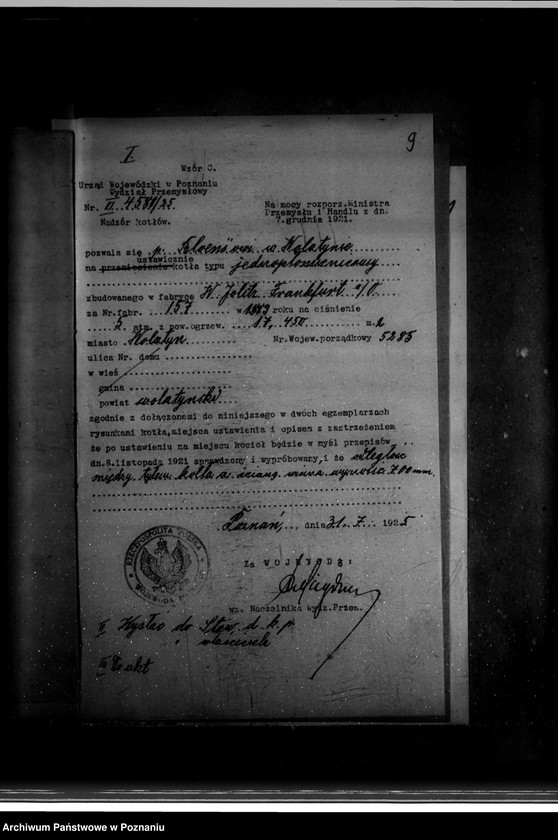 9
I.
Wzór C.
Urząd Wojewódzki w Poznaniu
Wydział Przemysłowy
Nr. VI 4581/25.
Nadzór kotłów.
Na mocy rozporz.Ministra
Przemysłu i Handlu z dn.
7.grudnia 1921.
pozwala się p. w
ustawienie
na przeniesienie kotła typu jednopłomienicowy
zbudowanego w fabryce Frankfurt a/O.
za Nr.fabr. 157 w 1889 roku na ciśnienie
5 atm. z pow.ogrzew. 17,450 m.2
miasto Nr.Wojew.porządkowy 5285
ulica Nr. domu
w wieś
gmina
powiat
zgodnie z dołączonemi do niniejszego w dwóch egzemplarzach
rysunkami kotła,miejsca ustawienia i opisem z zastrzeżeniem
że po ustawieniu na miejscu kocioł będzie w myśl przepisów
dn.8.listopada 1921 sprawdzony i wypróbowany,i że odległość
między tyłem kotła a ścianą winna wynosić 700 mm.
Poznań, dnia 31. 7. 1925
RZECZPOSPOLITA POLSKA
WOJEWODA
Za WOJEWODĘ:
wz. Naczelnika Wydz.Przem.
II Wysłać do Stow. d. k. p.
" właściciela
III Do akt
Archiwum Państwowe w Poznaniu